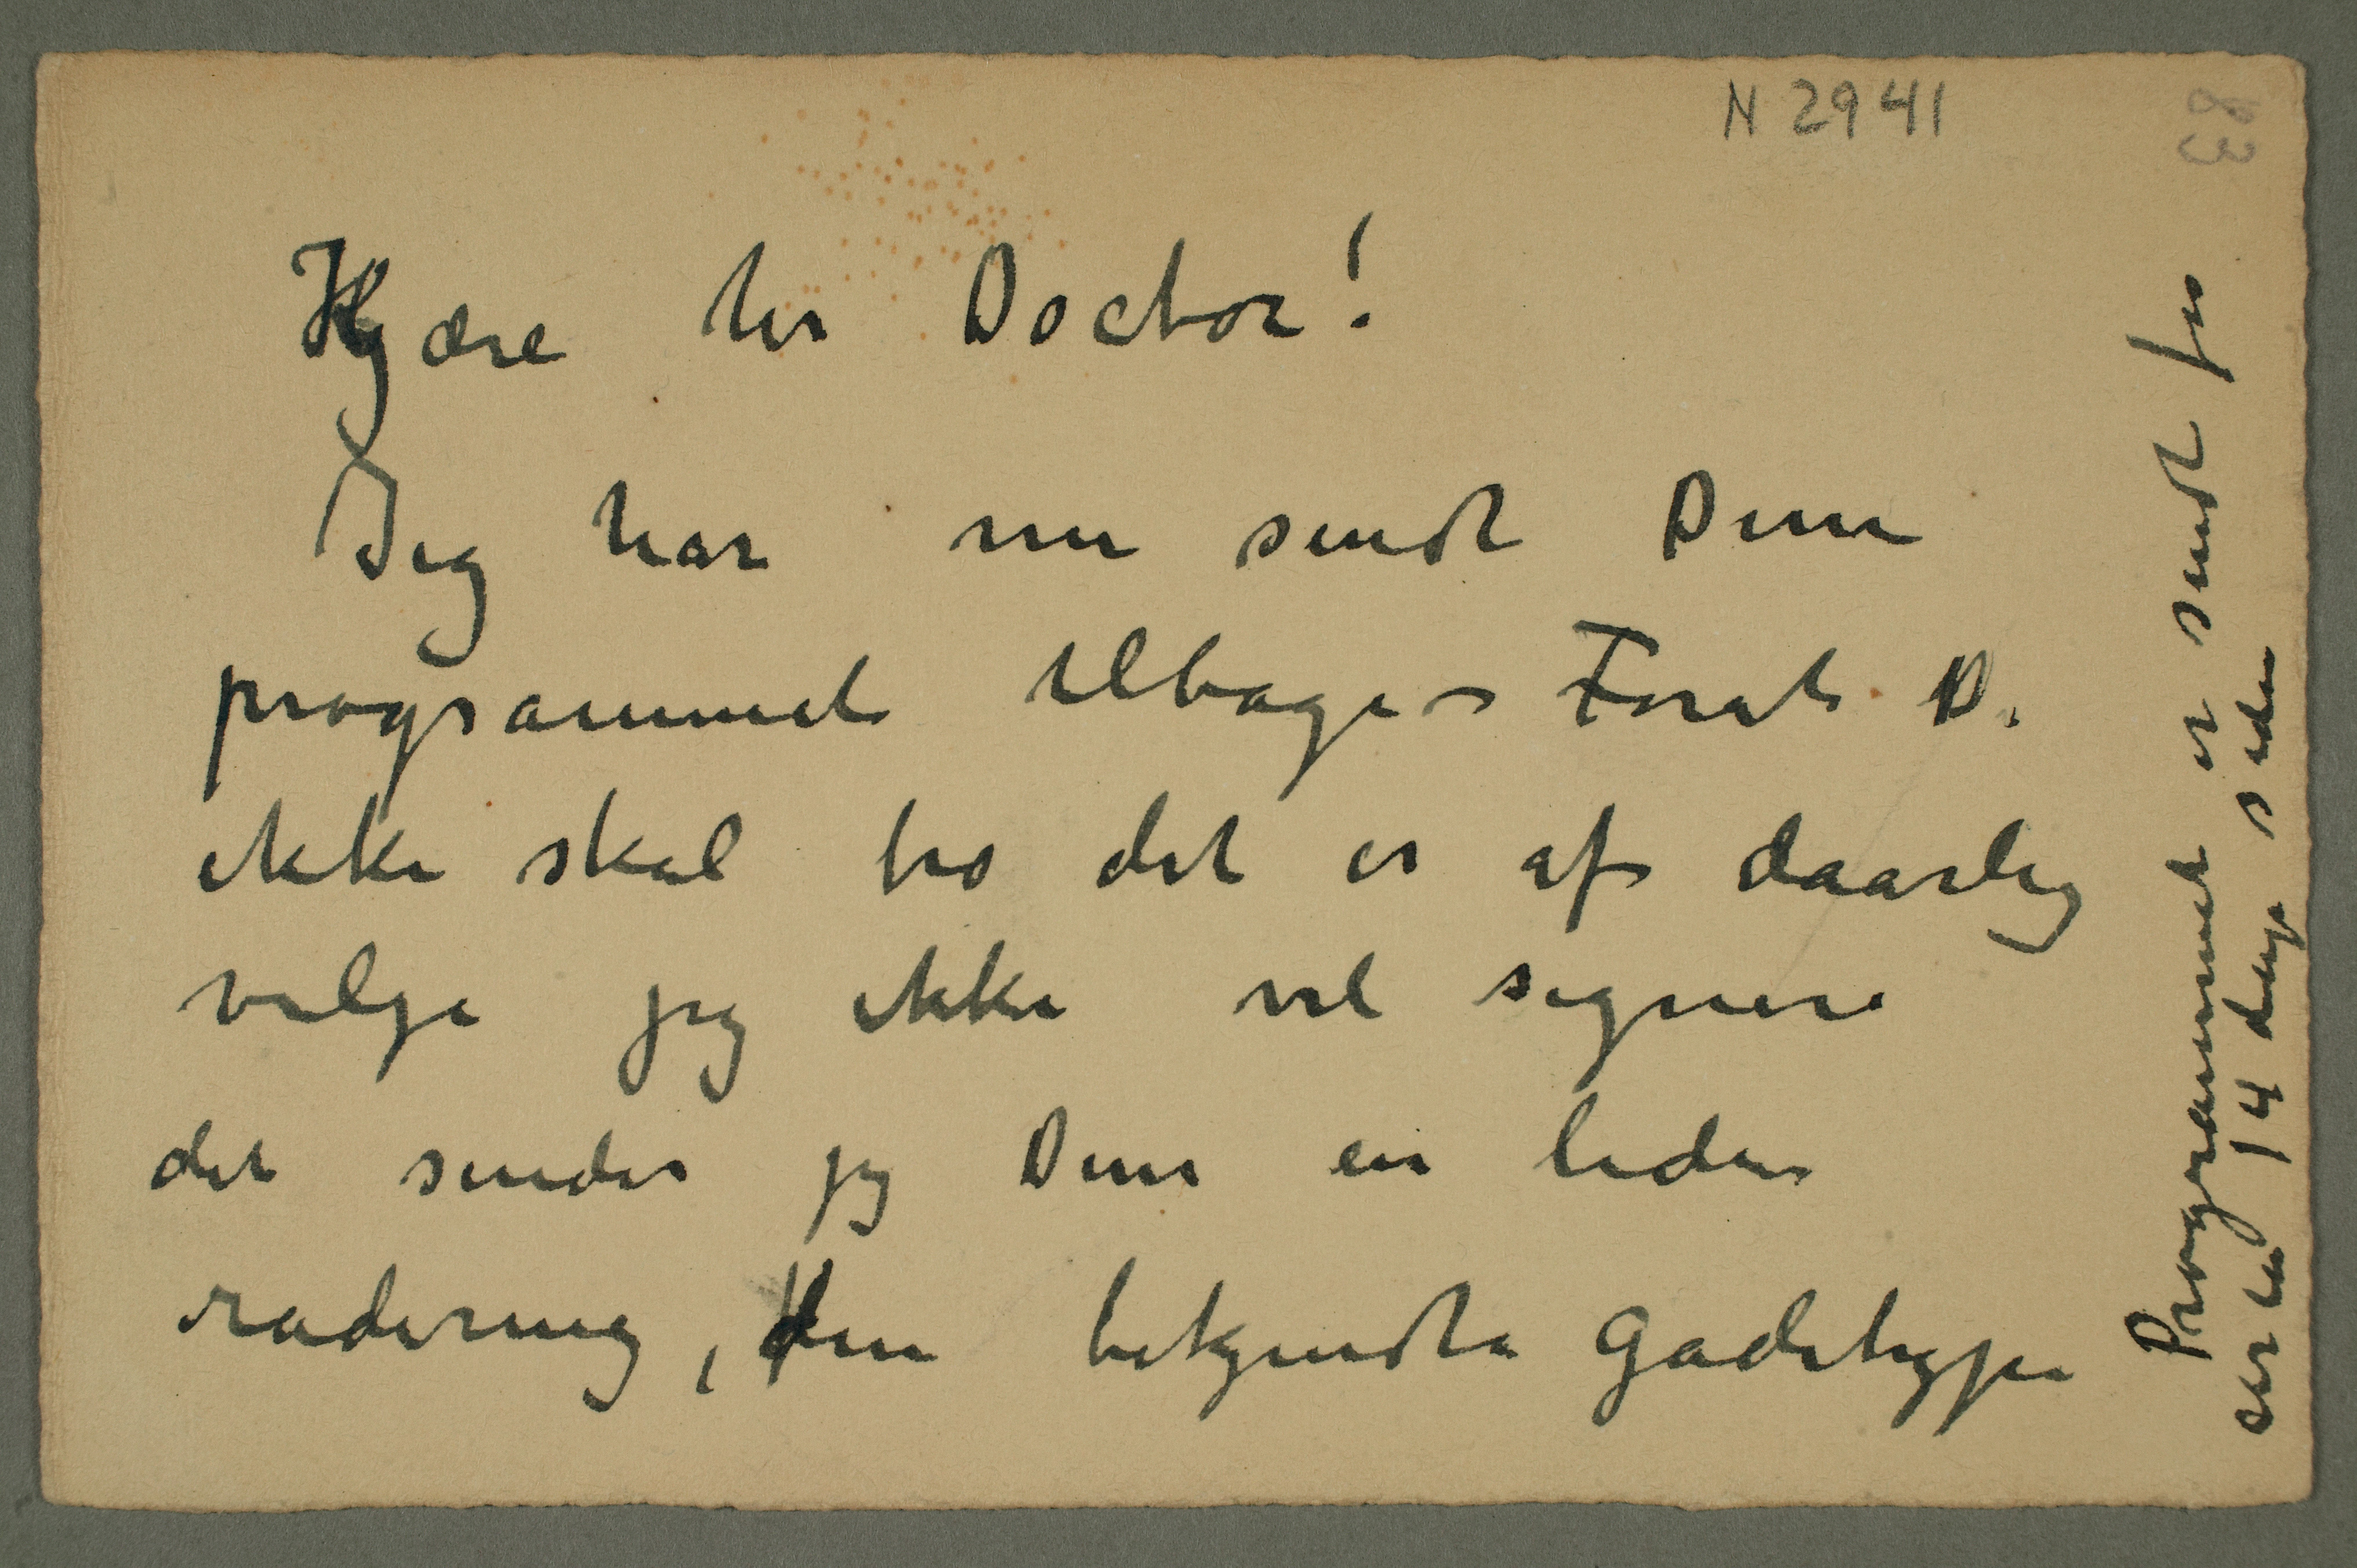 N 2941
83
Kjære hr Doctor!
Jeg har nu sendt Dem
programmet tilbage – Forat D.
ikke skal tro det er af daarlig
vilje jeg ikke vil signere
det sender jeg Dem en liden
radering, den bekjendte Gadetype
Programmet er sendt for
cirka 14 dage siden